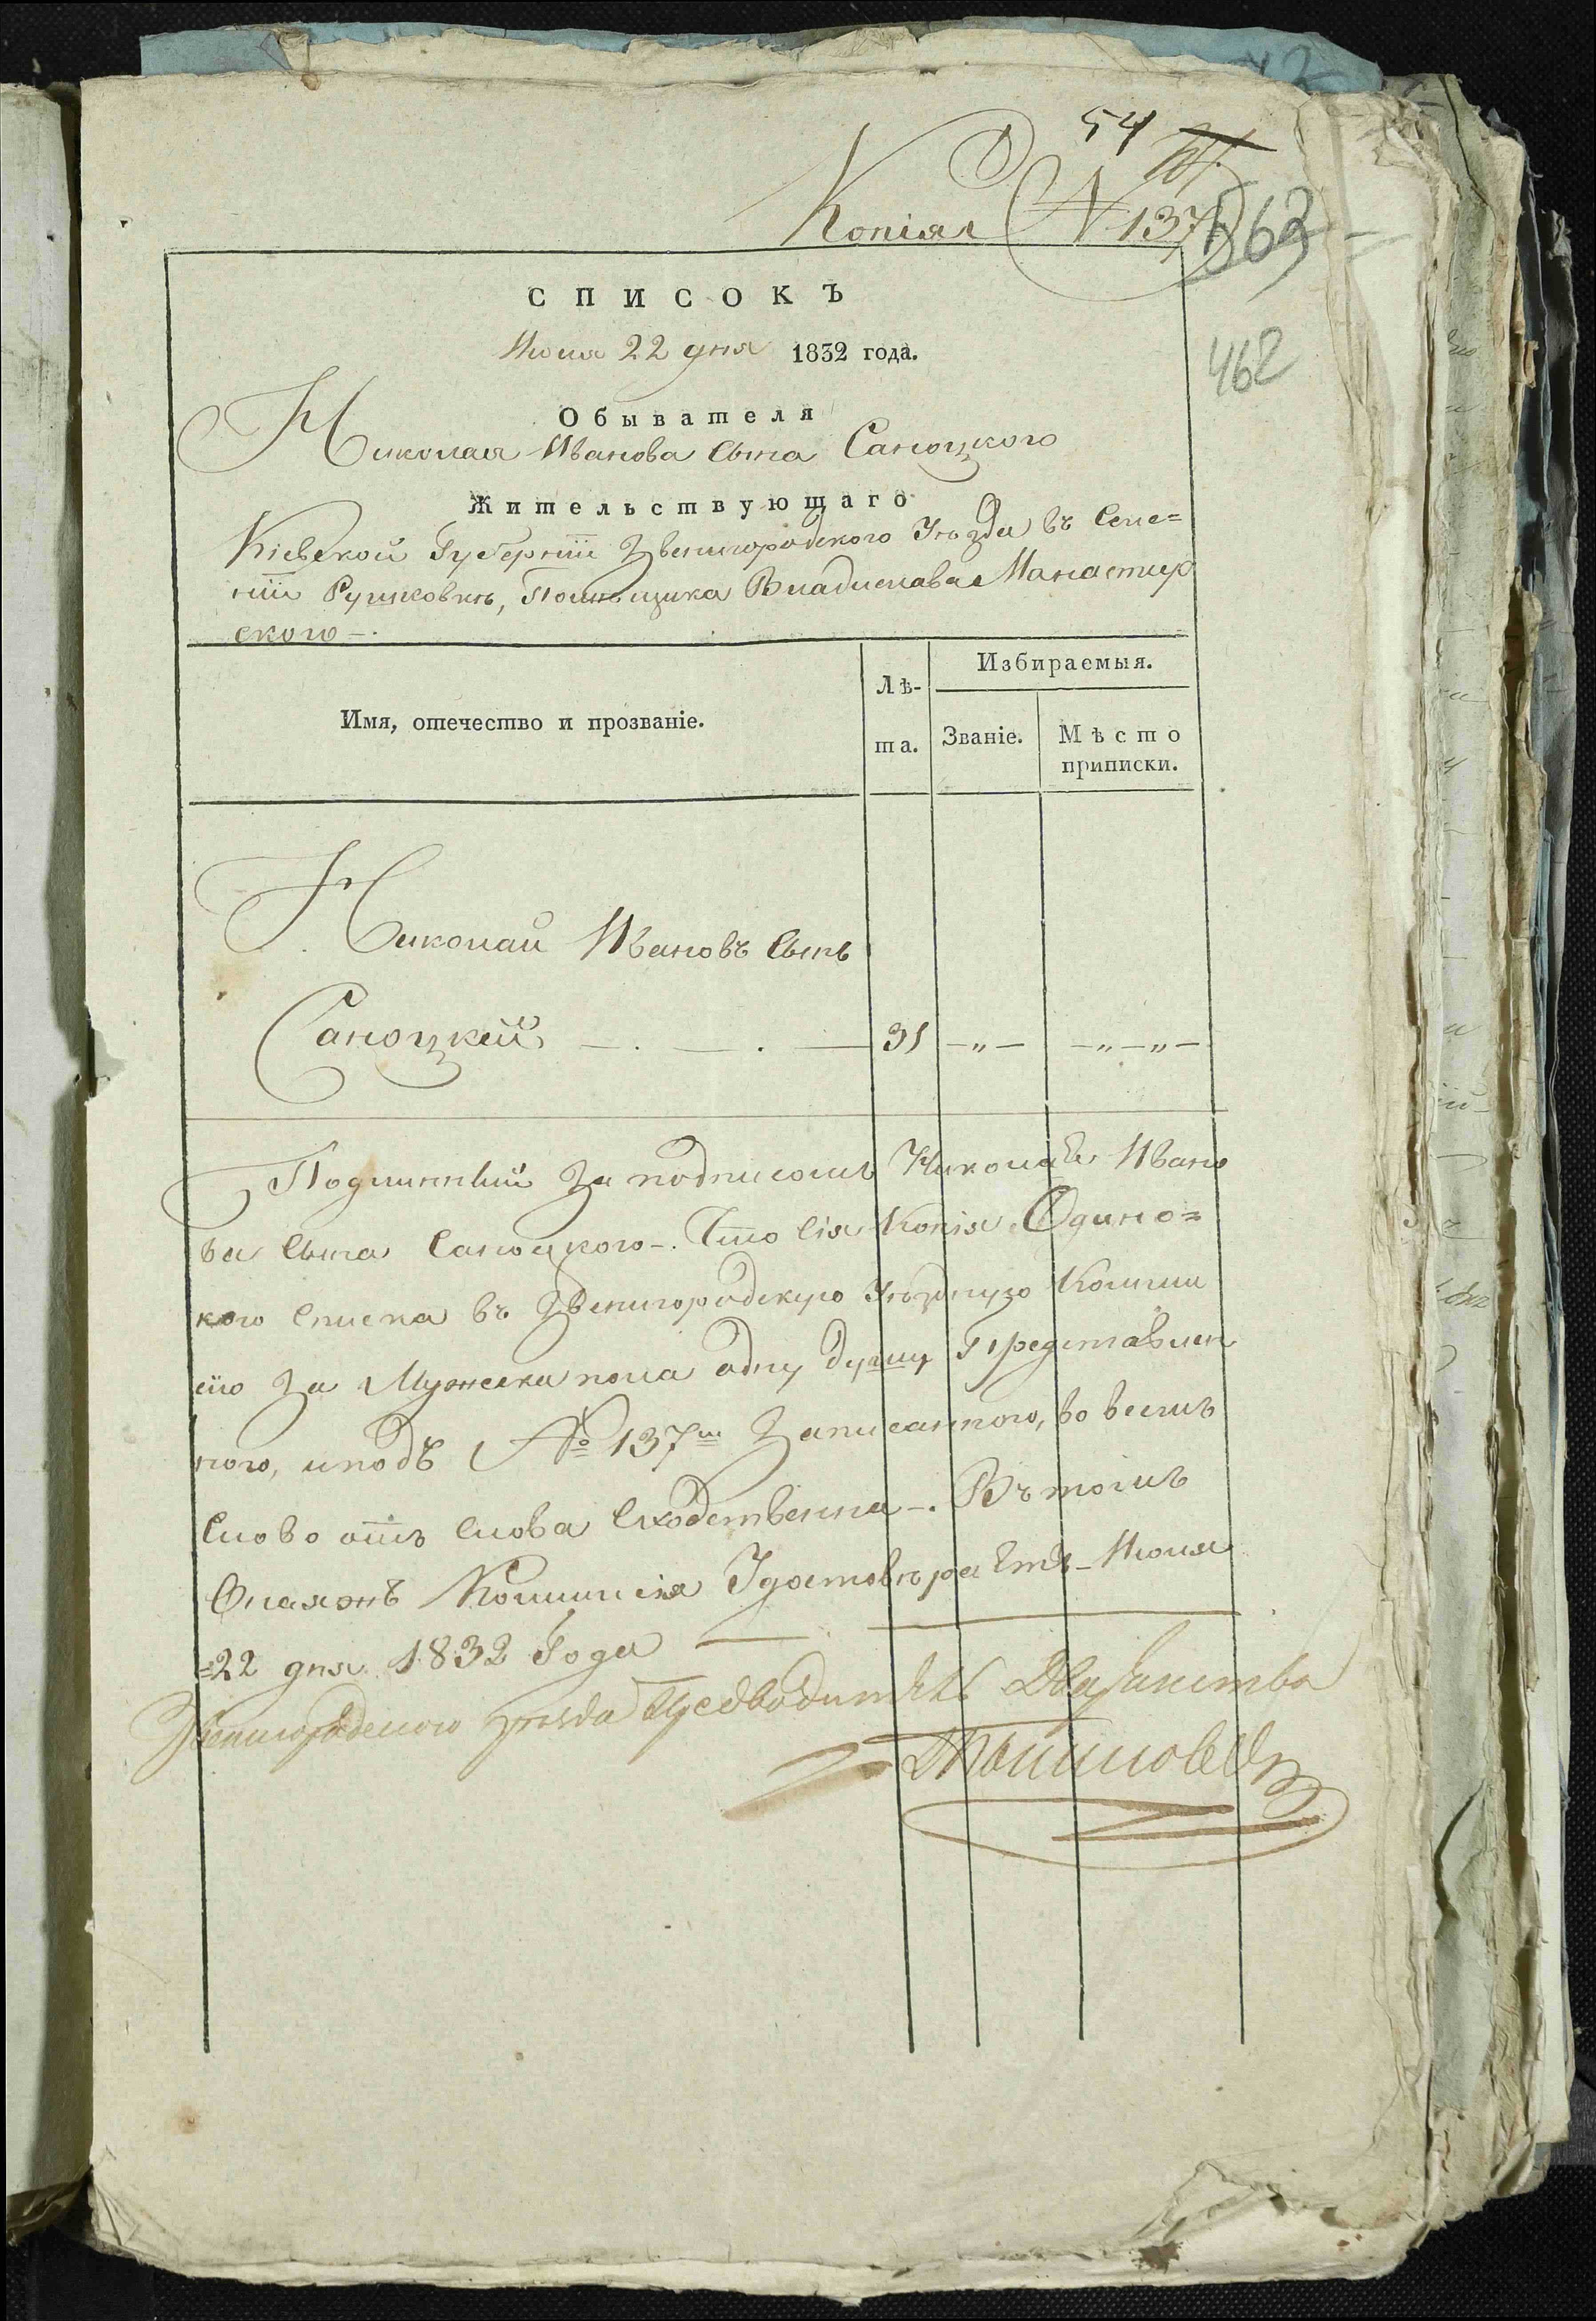 54
Копіял № 137
563
462
СПИСОКЪ
Июня 22 дня 1832 года.
Обывателя
Николая Иванова Сына Саноцкого
Жительствующаго
Кіевской Губерніи Звенигородского Уѣзда въ Селе=
ніи Рушковкѣ, Помѣщика Владислава Манастир
ского
Имя, отечество и прозваніе.
Лѣ-
та.
Избираемыя.
Званіе.
Мѣсто
приписки.
Николай Ивановъ Сынъ
Саноцкій 31 —„— —„—„—
Подлинный За подписомъ Николая Ивано
ва Сына Саноцкого. Что Сія Копія Одино=
кого Списка въ Звенигородскую Уѣздную Комми
сію За Мужеска пола одну душу Представлен
ного, и подъ № 137 Записанного, во всемъ
Слово отъ Слова Сходственна. Въ томъ
Оная онъ Коммисія Удостовѣряетъ Июня
22 дня 1832 Года
Звенигородского уѣзда Предводитель Дворянства